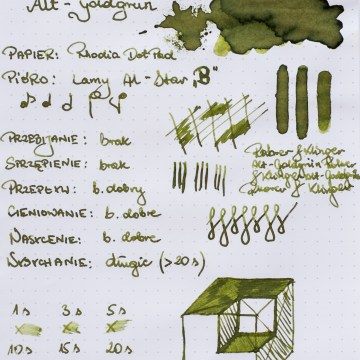 Alt-Goldgrün
PAPIER: Rhodia Dot Pad
PIÓRO: Lamy Al-Star „B"
PRZEBIJANIE: brak
STRZĘPIENIE: brak
PRZEPŁYW: b. dobry
CIENIOWANIE: b. dobre
NASYCENIE: b. dobre
WYSYCHANIE: długie (>20s)
Rohrer & Klinger
Alt-Goldgrün Rohrer
& Klinger Alt-Goldgrün
Rohrer & Klinger
1s 3s 5s
10s 15s 20s